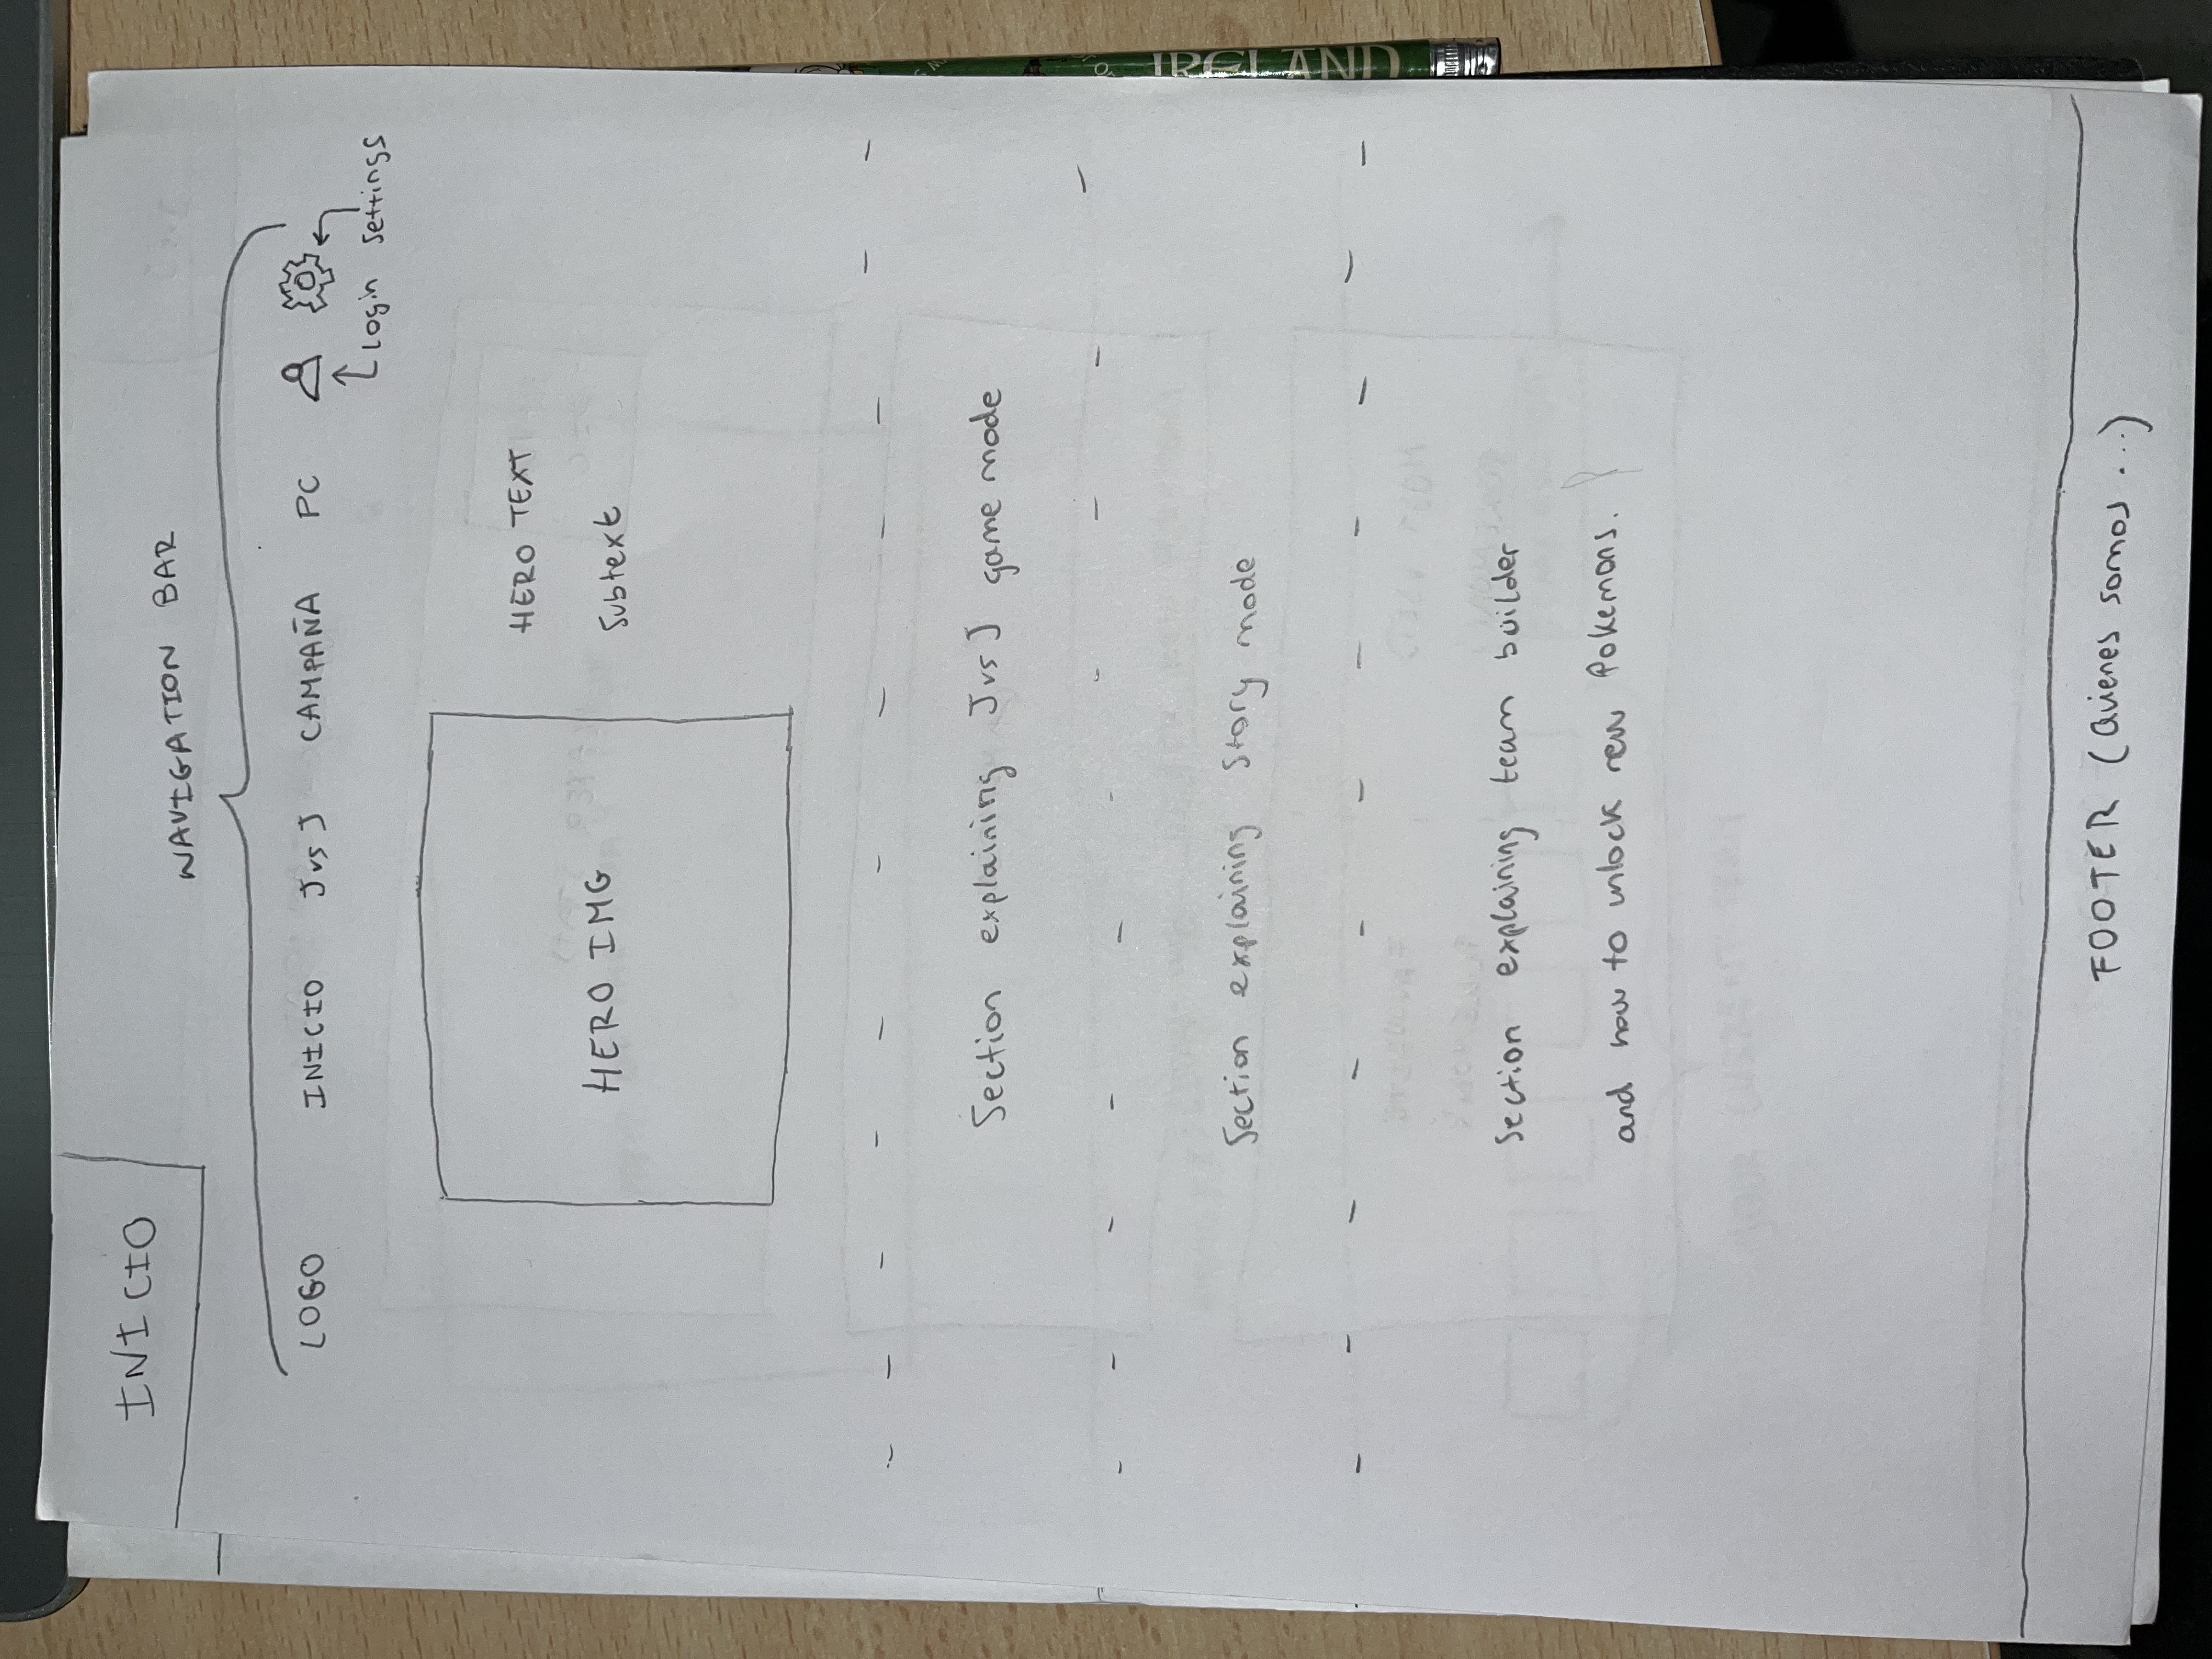 INICIO
NAVIGATION BAR
LOGO INICIO JvsJ CAMPAÑA PC
Login Settings
HERO IMG
HERO TEXT
Subtext
Section explaining JvsJ game mode
Section explaining Story mode
Section explaining team builder
and how to unlock new Pokemons.
FOOTER (Quienes somos ...)
IRELAND